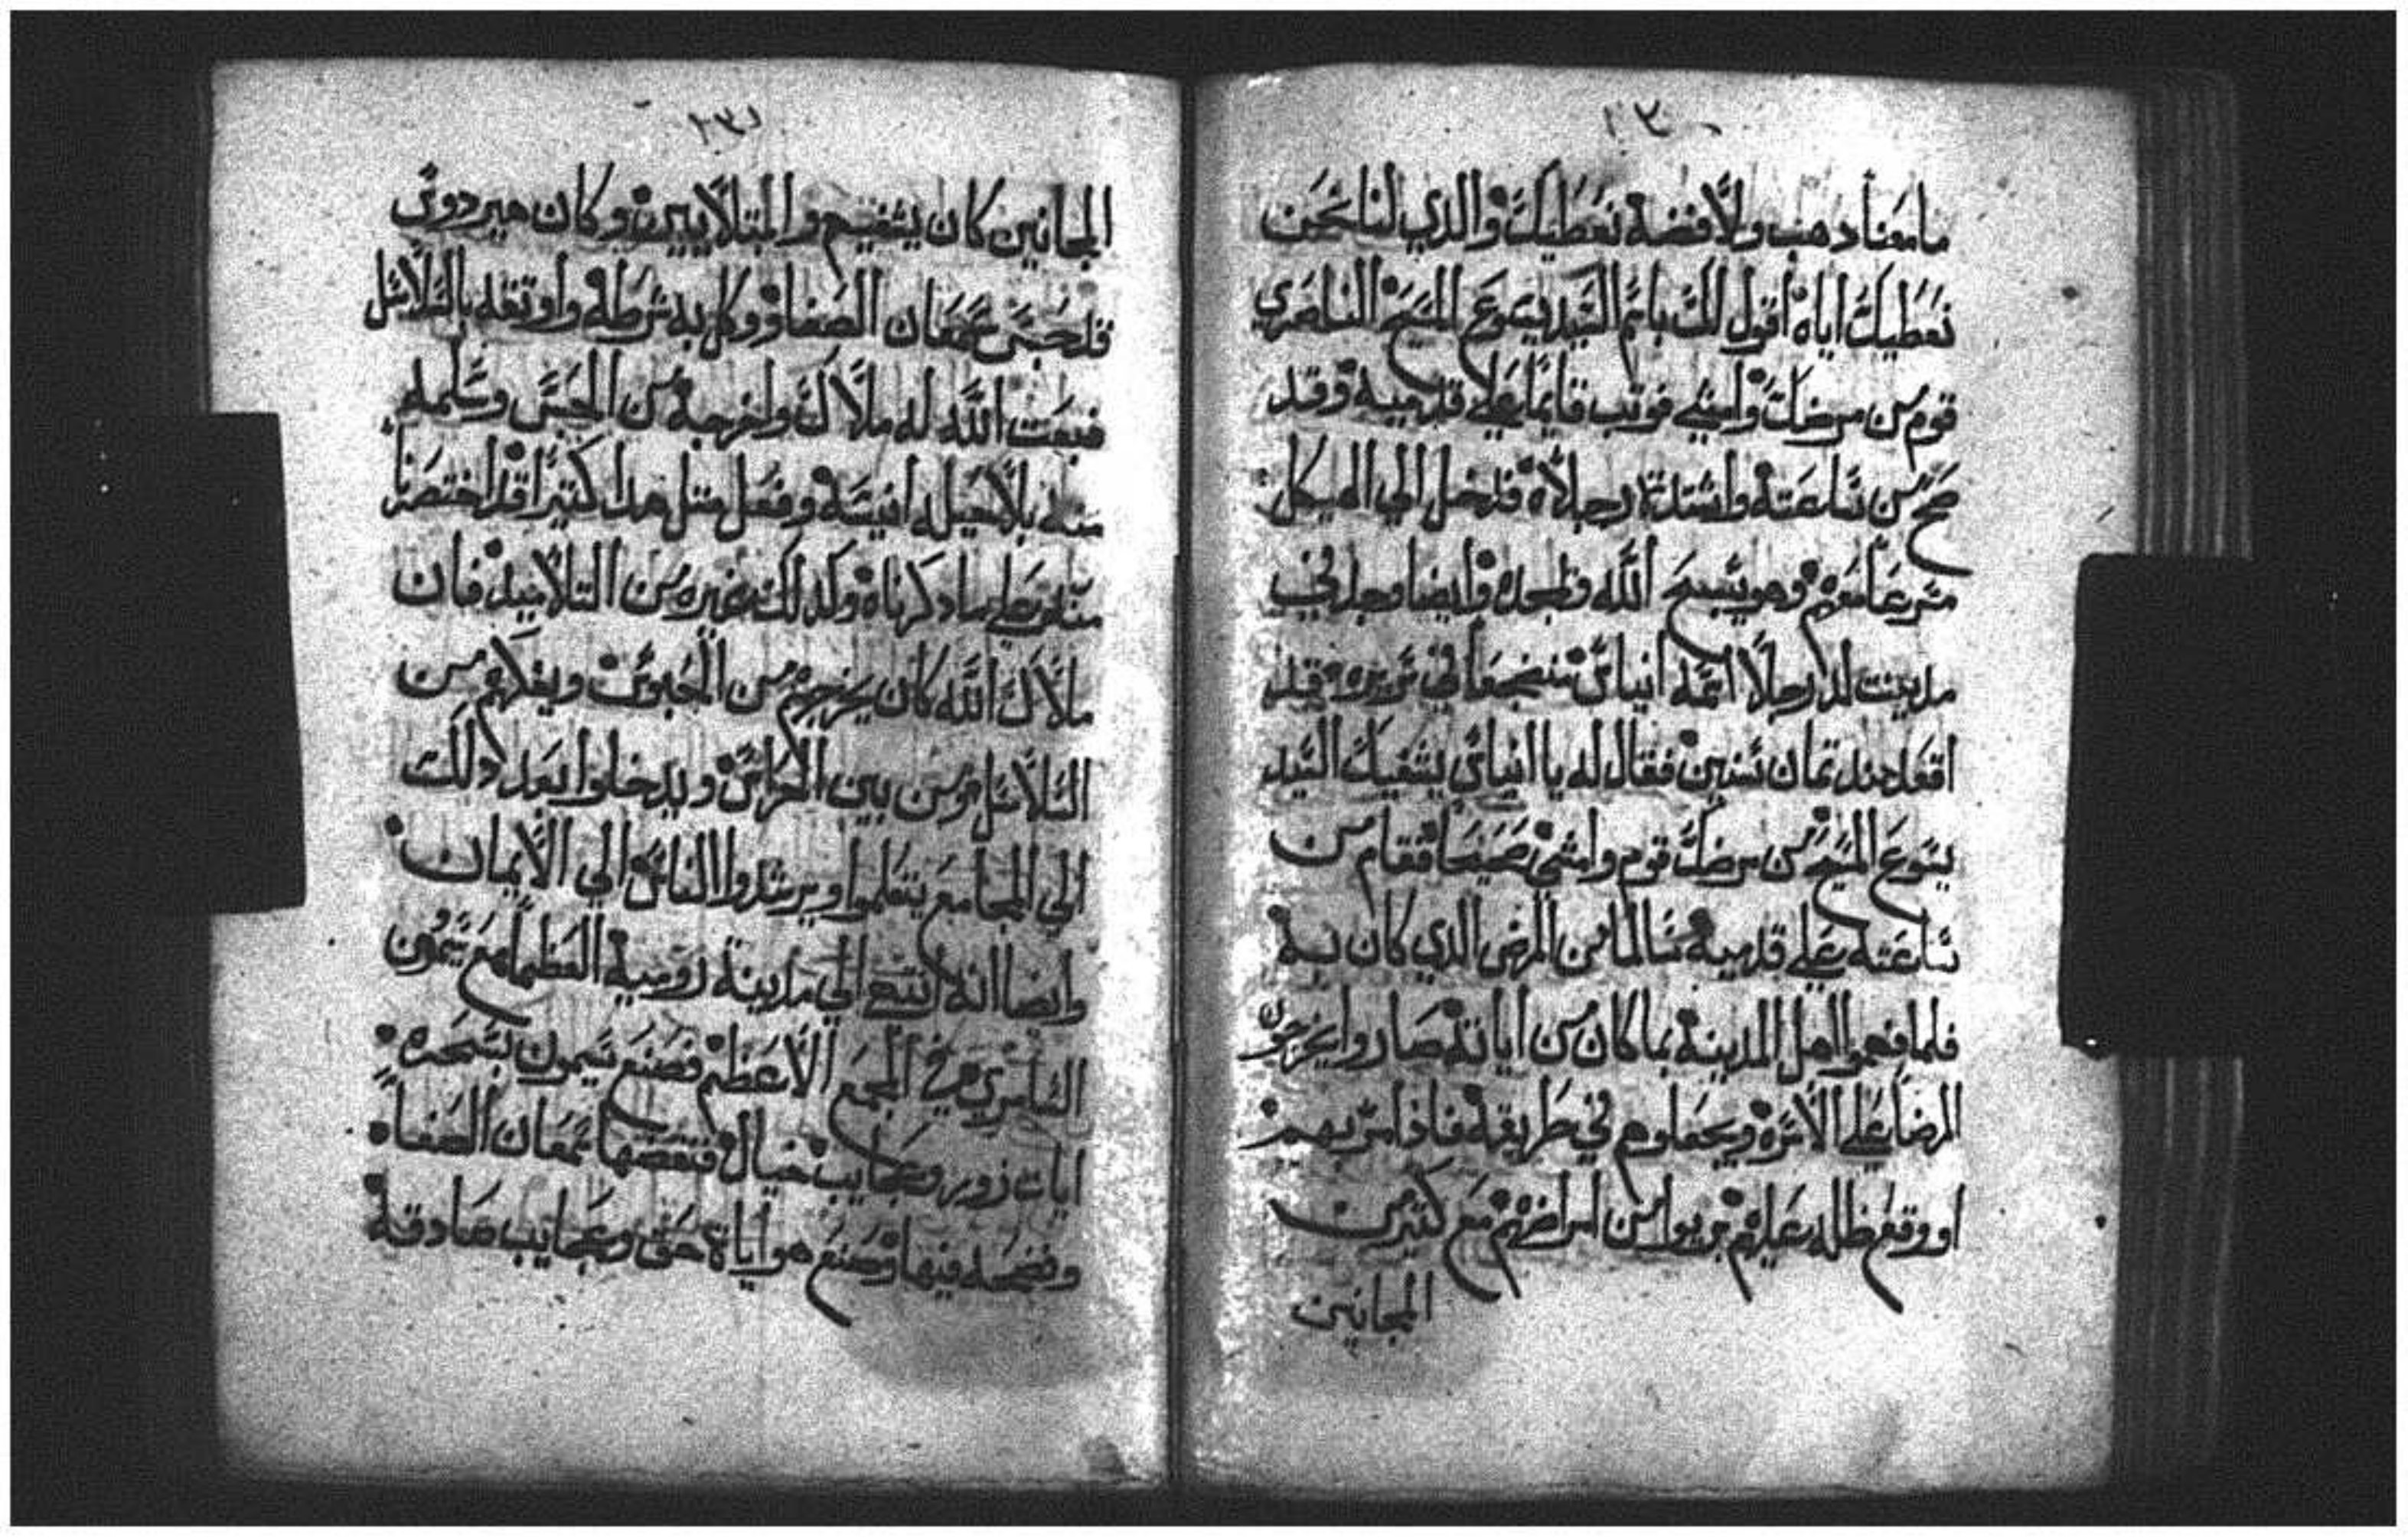 ١٣٠
مامعنا دهب ولا فضة نعطيك والدي لنا نحن
نعطيك اياه اقول لك باسم السيد يسوع المسيح الناصري
قوم من مرضك وامشي فوتب قايما علي قدميه وقد
صح من ساعته واشتدة رجلاه فدخل الي الهيكل
وهو يسبح الله ويمجده وايضا وجد في
مدينت لد رجلا اسمه انياس منضجعا في سريره قيد
اقعد مند تمان سنين فقال له يا انياس يشفيك السيد
يسوع المسيح من مرضك قوم وامشي صحيحا فقام من
ساعته علي قدميه سالما من المرض الدي كان به
فلما فهموا اهل المدينة بما كان من اياته صاروا يخرجون
المرضا علي الاسره ويجعلوهم في طريقه فادا مر بهم
او وقع ظله عليهم يبريوا من امراضهم مع كتير من
المجانين
١٣١
المجانين كان يشفيهم والمبتلايين وكان هيردوس
قد حبس سمعان الصفا ووكل به شرطه واوتقه بالسلاسل
فبعت الله له ملاك واخرجه من الحبس وسلمه
منه بلا حيله انيسه وفعل متل هدا كتيرا قد اختصرنا
منه علي ما دكرناه وكدلك غيره من التلاميد فان
ملاك الله كان يخرجهم من الحبوس ويفلاهم من
السلاسل ومن بين الحراس ويدخلوا بعد دلك
الي المجامع يتعلموا ويرشدوا الناس الي الايمان
وايضا انه اتبع الي مدينة رومية العظما مع سيمون
الساحري في المجمع الاعظم فصنع سيمون بسحره
ايات زور وعجايب خيال فنقضها سمعان الصفا
وفضحه فيها وصنع هو اياة حق وعجايب صادقة